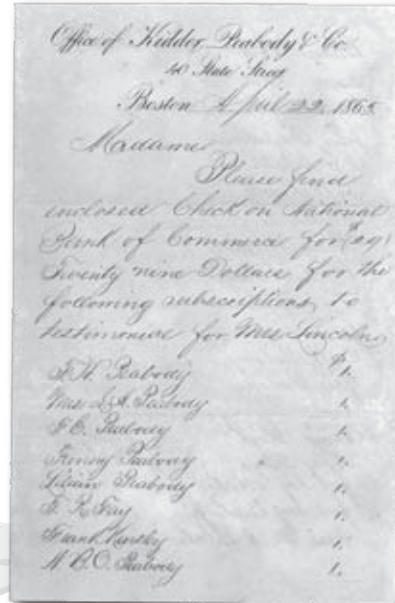 Office of Kidder, Peabody & Co.
40 State Street
Boston April 22, 1865
Madame
Please find
enclosed Check on National
Bank of Commerce for $29
Twenty nine Dollars for the
following subscriptions to
testimonial for Mrs. Lincoln
$
F. H. Peabody 1.
Mrs. Peabody 1.
F. E. Peabody 1.
Peabody 1.
Lilian Peabody 1.
Fay 1.
Frank 1.
Peabody 1.